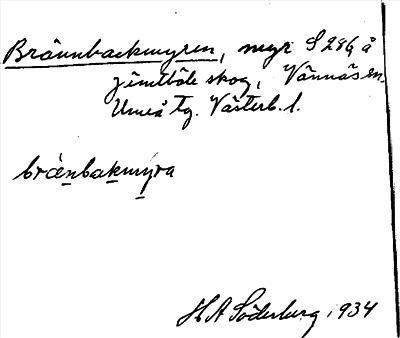 Brännbackmyren, myr S 286 å
Jämtböle skog, Vännäs sn.
Umeå tg. Västerb. l.
bränbakmyra
H A Söderberg 1934